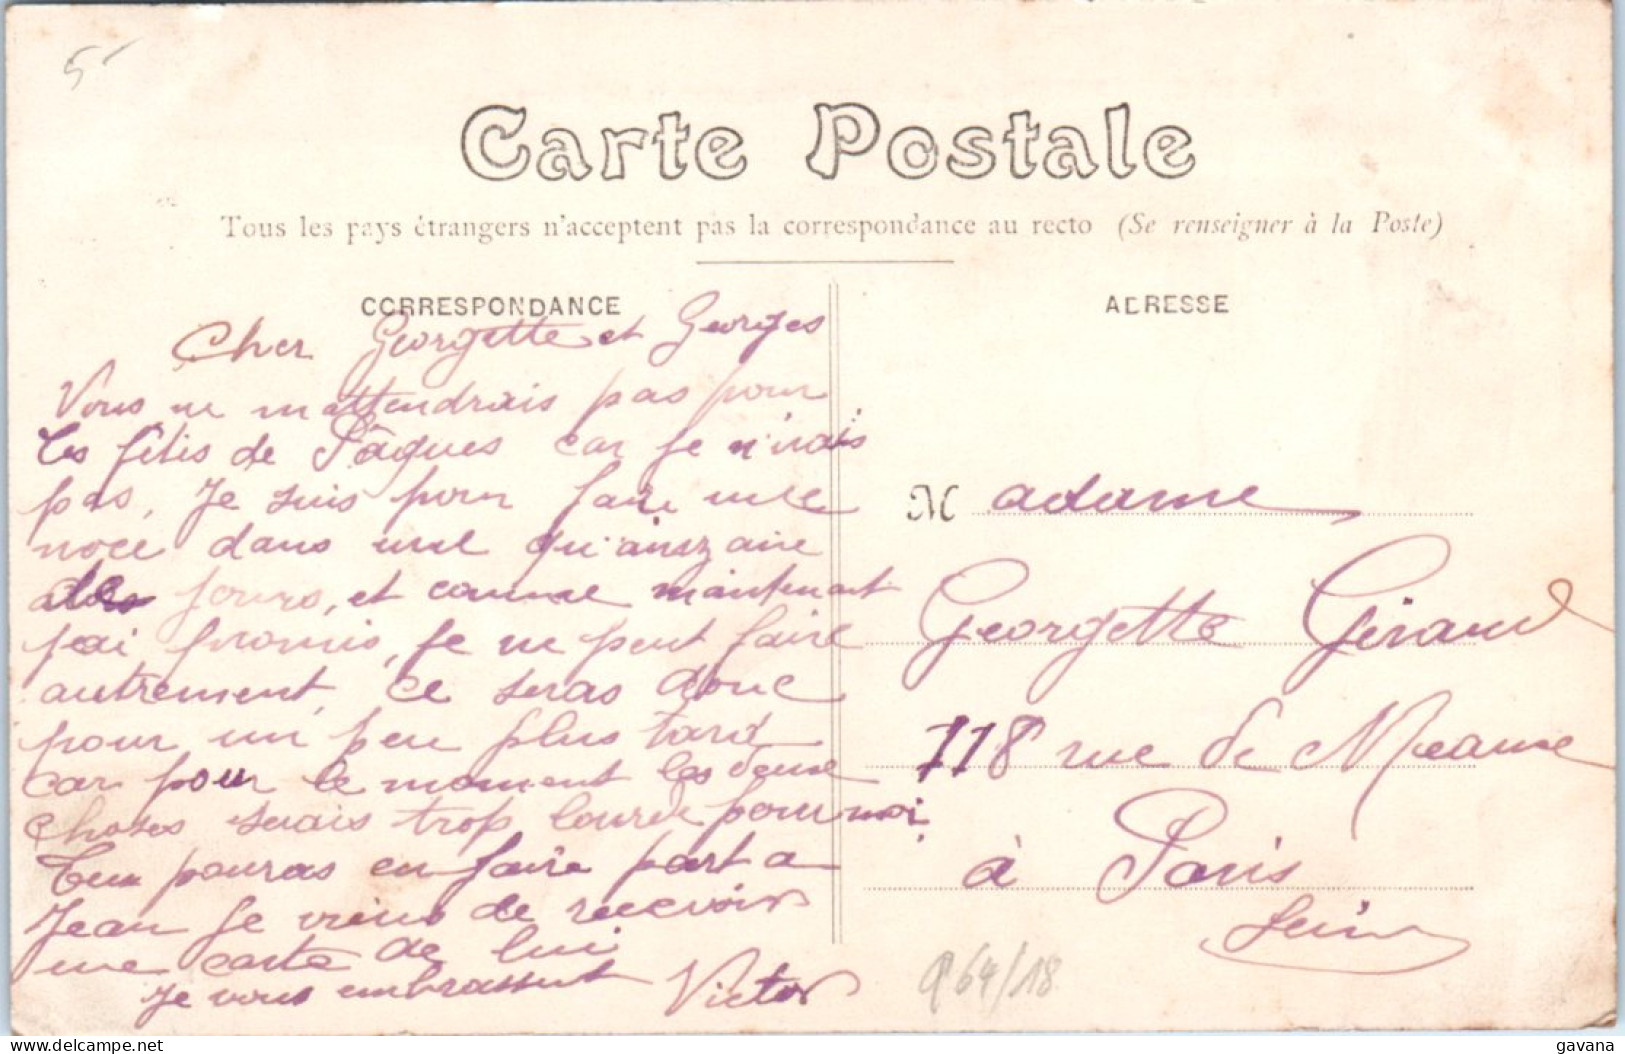 5
Carte Postale
Tous les pays étrangers n'acceptent pas la correspondance au recto (Se renseigner à la Poste)
CORRESPONDANCE
Cher Georgette et Georges
Vous ne mattendrais pas pour
les fêtes de Pâques car je n'irais
pas, Je suis pour faire une
noce dans une qu'ainzaine
de jours, et comme maintenant
j'ai promis, je ne peut faire
autrement, ce seras donc
pour un peu plus tard
car pour le moment les deux
choses serais trop lourde pour moi.
Tu pouras en faire part a
Jean Je viens de recevoir
une carte de lui
Je vous embrassent Victor
ADRESSE
Madame
Georgette Giraud
118 rue de Meaux
à Paris
Seine
64/18
gavana
delcampe.net